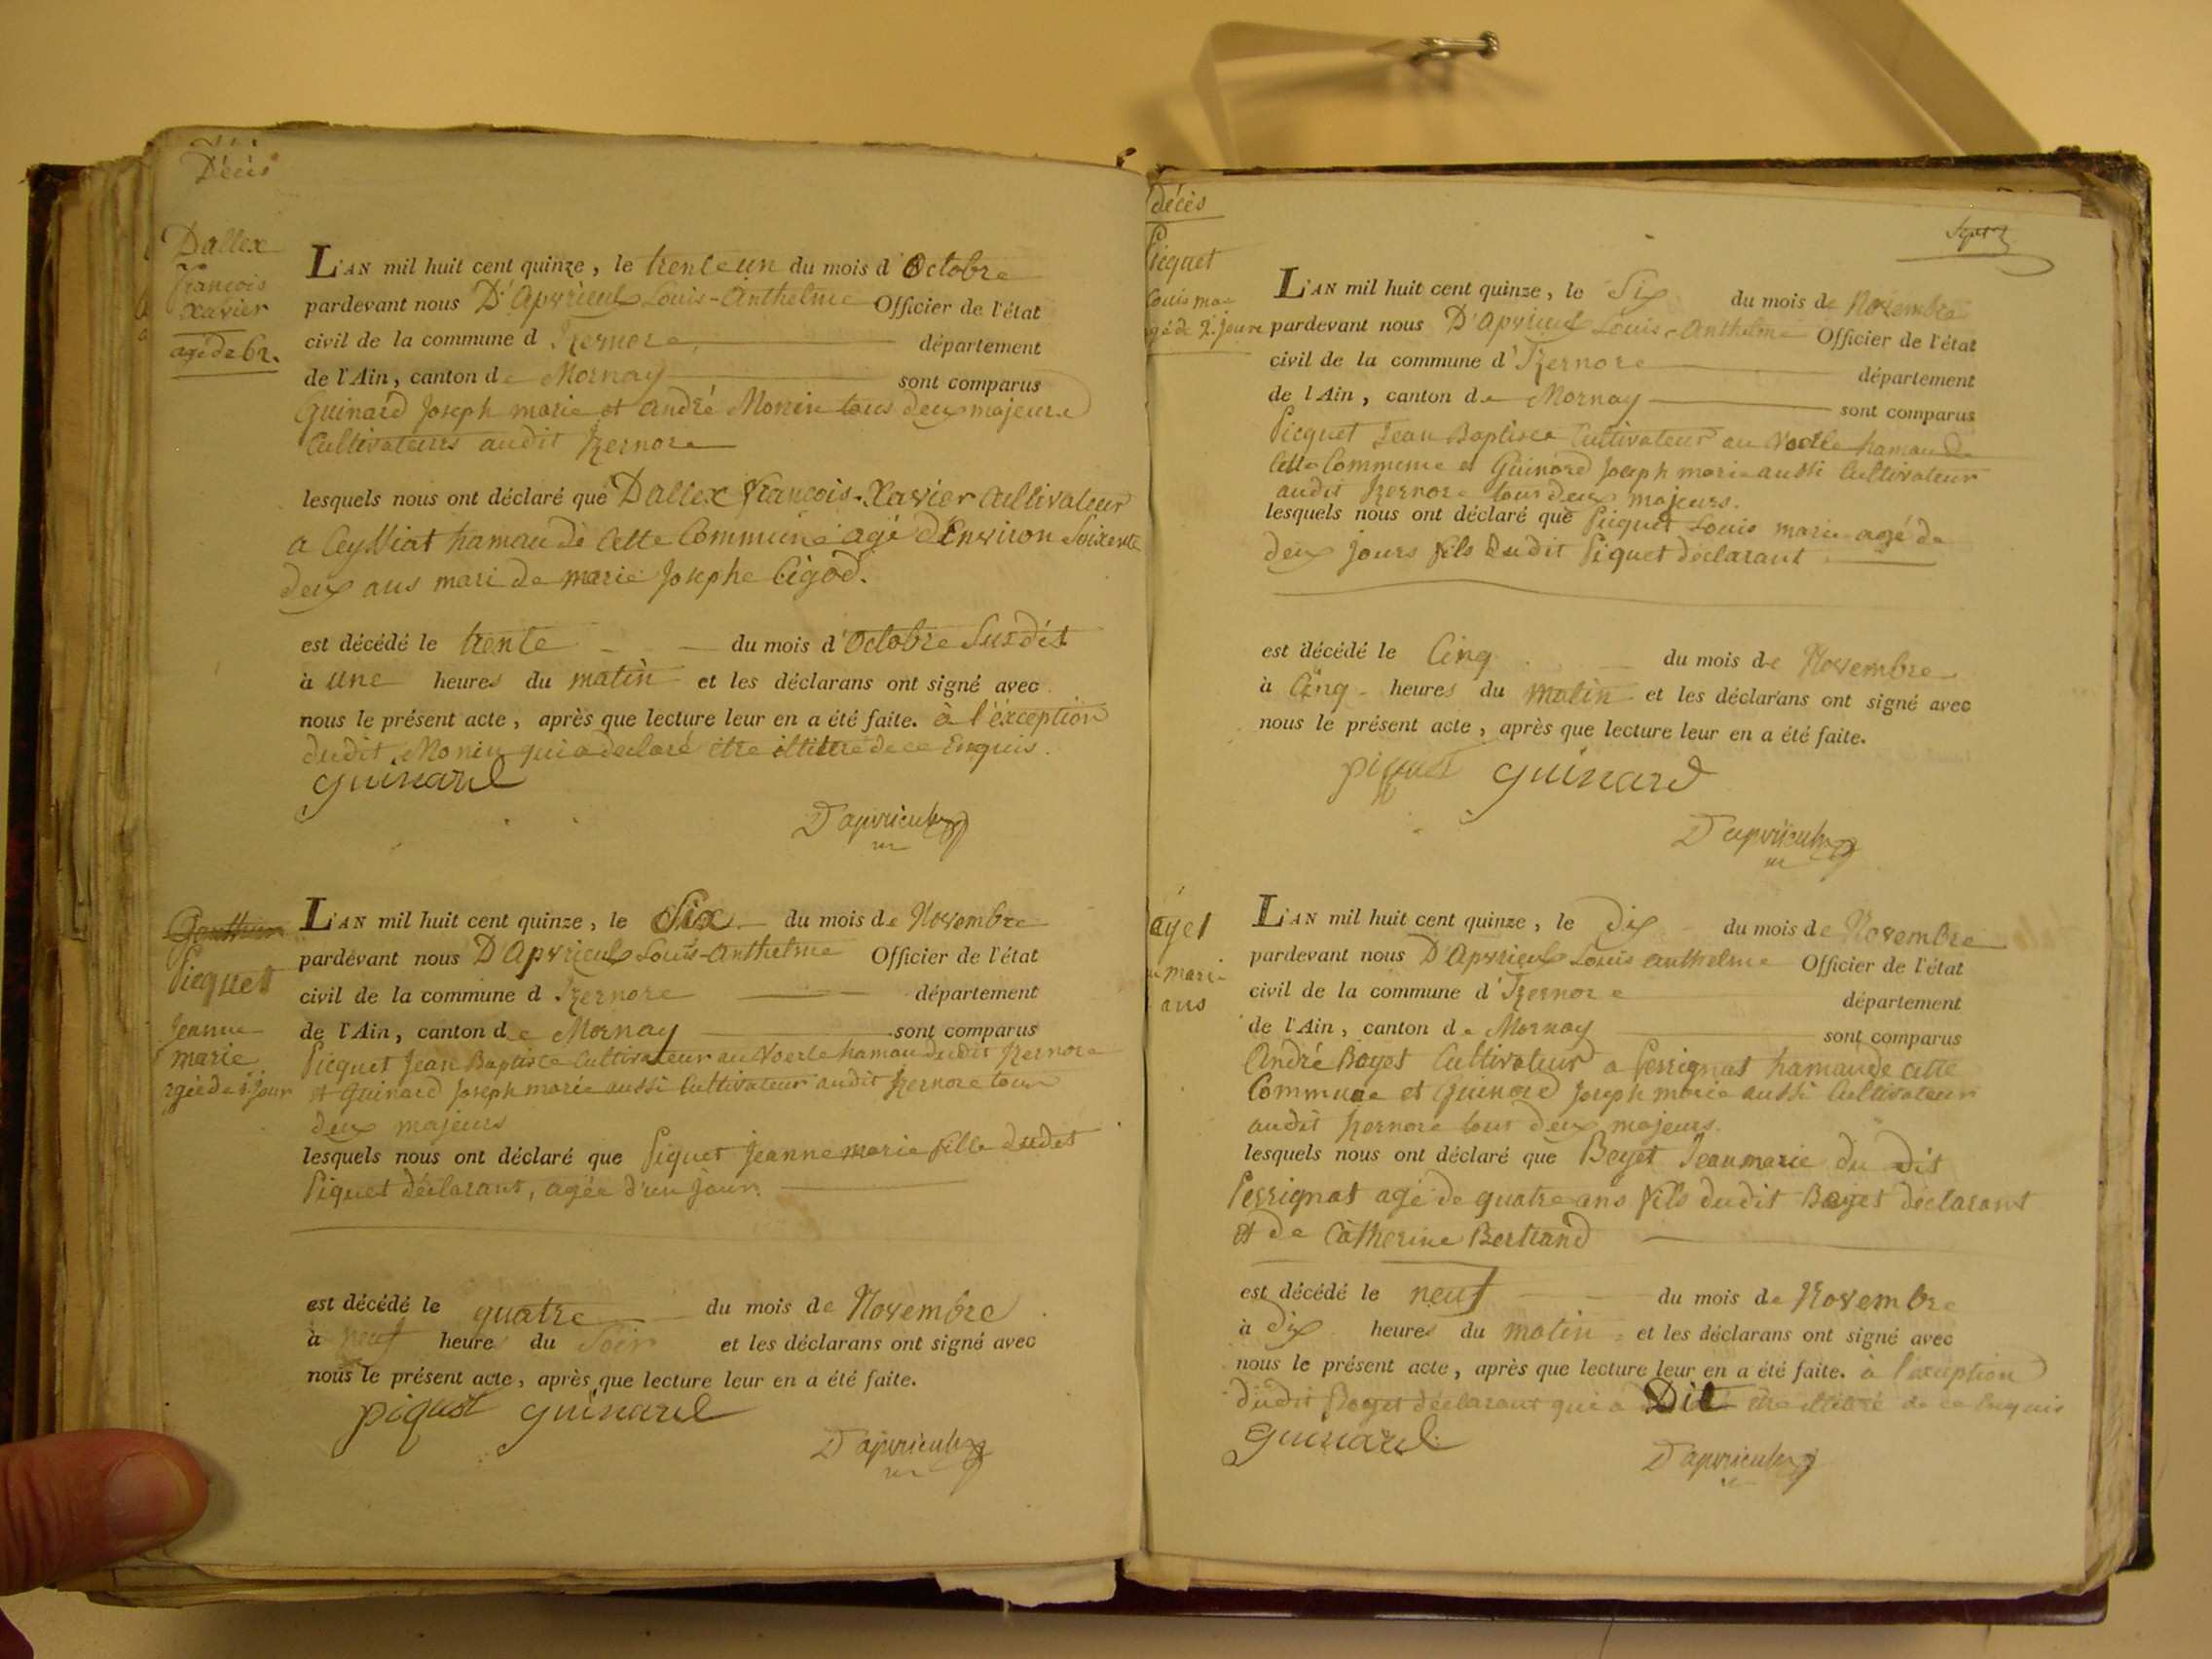 Décès
Dallex
François
Xavier
agé de 62.
L'AN mil huit cent quinze, le trente un du mois d'Octobre
pardevant nous D'Apvrieulx Louis-Anthelme Officier de l'état
civil de la commune d Izernore, département
de l'Ain, canton de Mornay sont comparus
Guinard Joseph marie et andré Monin tous deux majeurs
Cultivateurs audit Izernore
lesquels nous ont déclaré que Dallex François-Xavier Cultivateur
a Ceyssiat hamau de Cette Commune agé d'Environ Soixente
deux ans mari de marie Josephe Cigod.
est décédé le trente du mois d'Octobre Susdit
à une heures du matin et les déclarans ont signé avec
nous le présent acte, après que lecture leur en a été faite. à l'éxception
dudit Monin qui a declaré être illitéré de ce Enquis.
guinard
D'apvrieulx
Gauthier
Picquet
Jeanne
marie
agée de 1. jour
L'AN mil huit cent quinze, le Six du mois de Novembre
pardevant nous D'Apvrieulx Louis-Anthelme Officier de l'état
civil de la commune d Izernore département
de l'Ain, canton de Mornay sont comparus
Picquet Jean Baptiste Cultivateur au Voerle hamau dudit Izernore
et Guinard Joseph marie aussi Cultivateur audit Izernore tous
deux majeurs
lesquels nous ont déclaré que Piquet Jeanne marie fille dudit
Piquet déclarant, agée d'un jour.
est décédé le quatre du mois de Novembre
à neuf heure du Soir et les déclarans ont signé avec
nous le présent acte, après que lecture leur en a été faite.
piquet guinard
D'apvrieulx
décès
Picquet
Louis ma
agé de 2. jours
L'AN mil huit cent quinze, le Six du mois de Novembre
pardevant nous D'Apvrieulx Louis-Anthelme Officier de l'état
civil de la commune d'Izernore département
de l'Ain, canton de Mornay sont comparus
Picquet Jean Baptiste Cultivateur au Voerle hamau de
Cette Commune et Guinard Joseph marie aussi Cultivateur
audit Izernore tous deux majeurs.
lesquels nous ont déclaré que Picquet Louis marie agé de
deux jours fils dudit Piquet déclarant
est décédé le Cinq du mois de Novembre
à Cinq heures du matin et les déclarans ont signé avec
nous le présent acte, après que lecture leur en a été faite.
piquet guinard
D'apvrieulx
ayet
marie
ans
L'AN mil huit cent quinze, le dix du mois de Novembre
pardevant nous D'Apvrieulx Louis anthelme Officier de l'état
civil de la commune d'Izernore département
de l'Ain, canton de Mornay sont comparus
André Bayet Cultivateur a Perrignat hamau de cette
Commune et Guinard Joseph marie aussi Cultivateur
audit Izernore tous deux majeurs.
lesquels nous ont déclaré que Bayet Jean marie du dit
Perrignat agé de quatre ans fils dudit Bayet déclarant
et de Catherine Bertrand
est décédé le neuf du mois de Novembre
à dix heures du matin et les déclarans ont signé avec
nous le présent acte, après que lecture leur en a été faite. à l'exception
dudit Bayet déclarant qui a Dit être illitéré de ce Enquis
guinard
D'apvrieulx